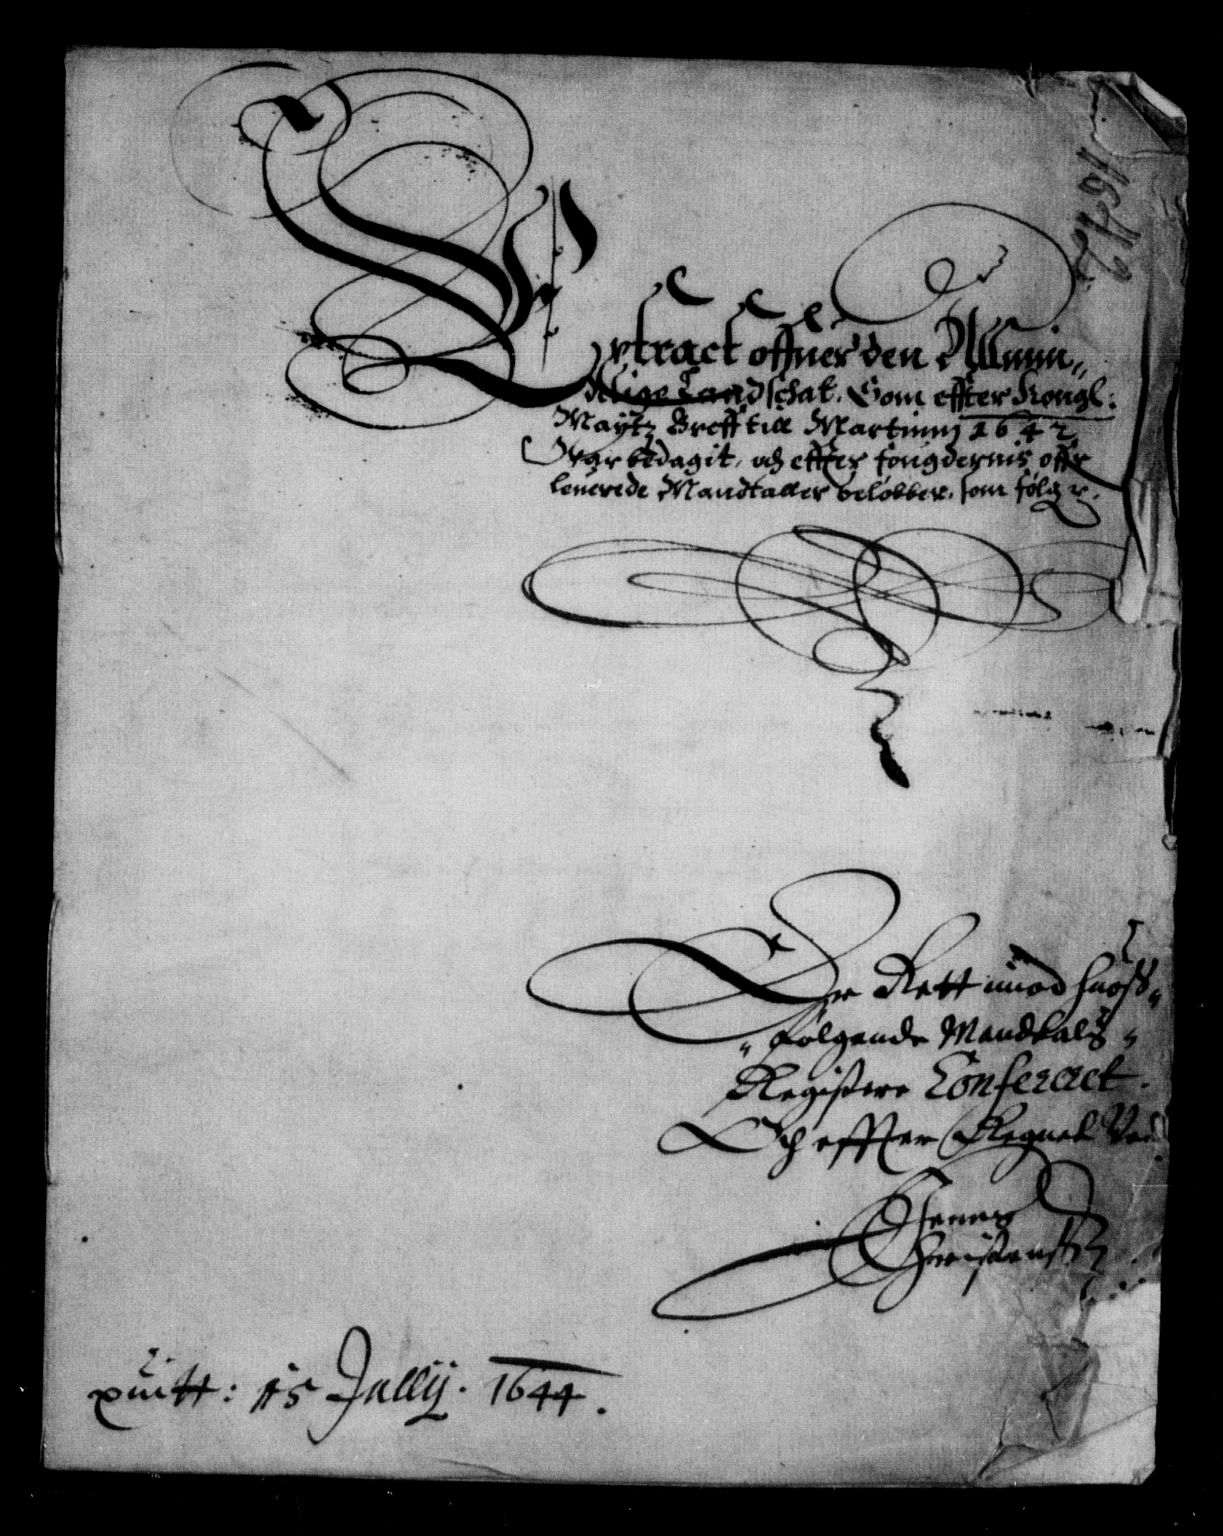 1642
Extract offuer den Almin„
delige Landschat, Som effter Kongl:
Maytz Breff till Martinnj 1642,
War bedagit, och effter fougdernis offr
leuerede Mandtaller beløbber, som følger.
Er Rett imod huoß„
„følgende Mandtals„
Registere Confereret.
Och effter Regnet Ved
Christensen
quitt: 15 Jullij. 1644.